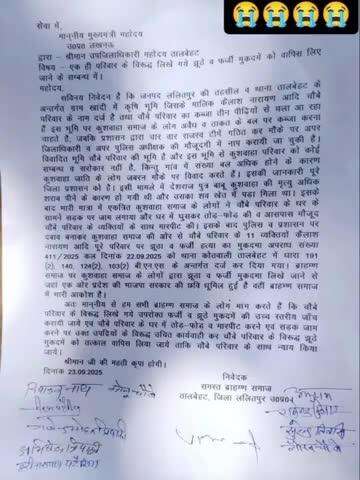 सेवा में,
माननीय मुख्यमंत्री महोदय
उ०प्र० लखनऊ
द्वारा – श्रीमान उपजिलाधिकारी महोदय तालबेहट
विषय – एक ही परिवार के विरूद्ध लिखे गये झूठे व फर्जी मुकदमें को वापिस लिए
जाने के सम्बन्ध में।
महोदय,
सविनय निवेदन है कि जनपद ललितपुर की तहसील व थाना तालबेहट के
अन्तर्गत ग्राम खांदी में कृषि भूमि जिसके मालिक कैलाश नारायण आदि चौबे
परिवार के नाम दर्ज है तथा चौबे परिवार का कब्जा तीन पीढ़ियों से चला आ रहा
है इस भूमि पर कुशवाहा समाज के लोग अवैध व ताकत के बल पर कब्जा करना
चाहते है, जबकि प्रशासन द्वारा चार बार राजस्व टीमें गठित कर मौके पर अवगत
जिलाधिकारी व अपर पुलिस अधीक्षक की मौजूदगी में नाप करायी जा चुकी है।
विवादित भूमि चौबे परिवार की भूमि है और इस भूमि से कुशवाहा परिवार को कोई
सम्बन्ध व सरोकार नहीं है, किन्तु गांव में संख्या बल अधिक होने के कारण
कुशवाहा जाति के लोग जबरन मौके पर विवाद करते है। इसकी जानकारी पूरे
जिला प्रशासन को है। इसी मामले में देशराज पुत्र बाबू कुशवाहा की मृत्यु अधिक
शराब पीने के कारण हो गयी थी और उसका शव खेत में पड़ा मिला था। इसके
बाद भारी मात्रा में एकत्रित कुशवाहा समाज के लोगों ने चौबे परिवार के घर के
सामने सड़क पर जाम लगाया और घर में घुसकर तोड़-फोड़ की व आसपास मौजूद
चौबे परिवार के व्यक्तियों के साथ मारपीट की। इसके बाद पुलिस व प्रशासन पर
दवाब बनाकर कुशवाहा समाज की ओर से चौबे परिवार के 11 व्यक्तियों कैलाश
नारायण आदि पूरे परिवार पर झूठा व फर्जी हत्या का मुकदमा अपराध संख्या
411/2025 कल दिनांक 22.09.2025 को थाना कोतवाली तालबेहट में धारा 191
(2), 140, 126(2), 103(2) बी.एन.एस. के अन्तर्गत दर्ज कर दिया गया। ब्राह्मण
समाज पर कुशवाहा समाज के लोगों द्वारा झूठा व फर्जी मुकदमा लिखे जाने से
जहां एक ओर प्रदेश की भाजपा सरकार की छवि धूमिल हुई है वहीं ब्राह्मण समाज
में भारी आक्रोश है।
अतः माननीय से हम सभी ब्राह्मण समाज के लोग मांग करते हैं कि चौबे
परिवार के विरूद्ध लिखे गये उपरोक्त झूठे व फर्जी मुकदमें की उच्च स्तरीय जाँच
करायी जाये एवं चौबे परिवार के घर में तोड़-फोड़ व मारपीट करने एवं सड़क जाम
करने पर उक्त दोषियों के विरूद्ध उचित कार्यवाही कर चौबे परिवार के विरूद्ध झूठे
मुकदमें को तत्काल वापिस लिया जाये ताकि चौबे परिवार के साथ न्याय किया
जाये।
श्रीमान जी की महती कृपा होगी।
दिनांक 23.09.2025
निवेदक
समस्त ब्राह्मण समाज
तालबेहट, जिला ललितपुर उ०प्र०